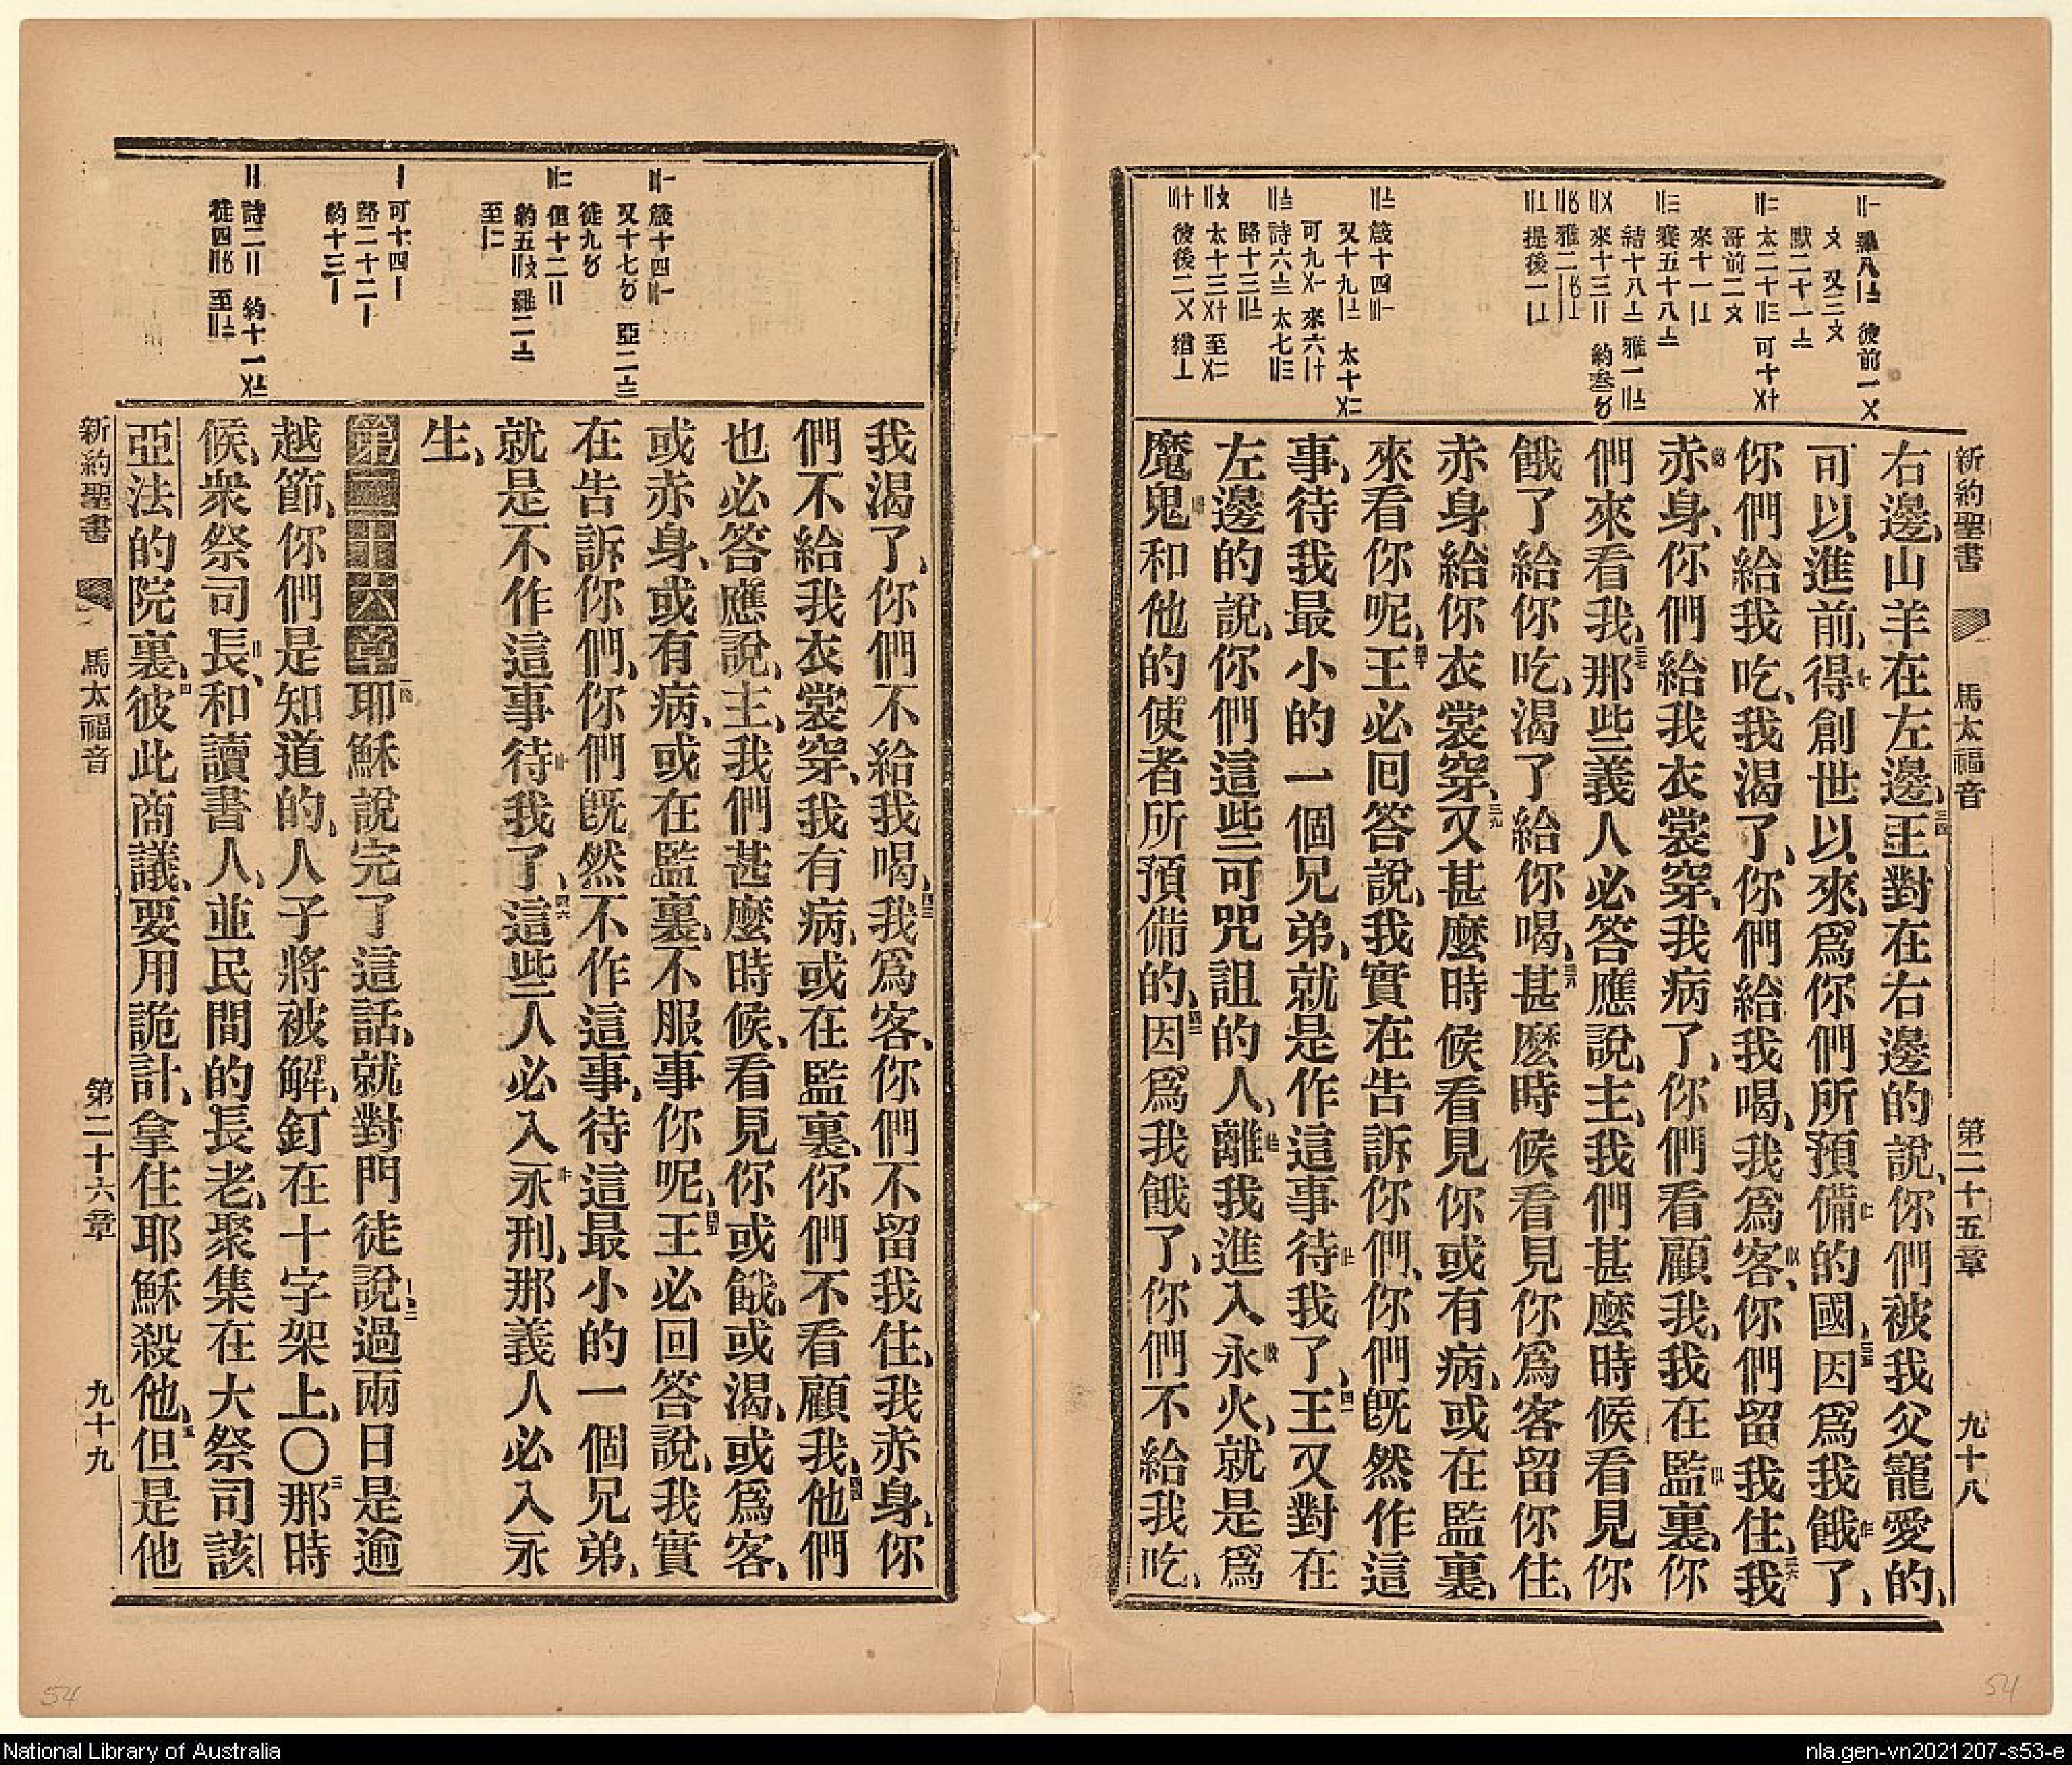 新約聖書 馬太福音 第二十五章 九十八
右邊、山羊在左邊、王對在右邊的說、你們被我父寵愛的、
可以進前、得創世以來、爲你們所預備的國、因爲我餓了、
你們給我吃、我渴了、你們給我喝、我爲客、你們留我住、我
赤身、你們給我衣裳穿、我病了、你們看顧我、我在監裏、你
們來看我、那些義人必答應說、主、我們甚麼時候看見你
餓了給你吃、渴了給你喝、甚麼時候看見你爲客留你住、
赤身給你衣裳穿、又甚麼時候看見你或有病、或在監裏、
來看你呢、王必回答說、我實在告訴你們、你們旣然作這
事、待我最小的一個兄弟、就是作這事待我了、王又對在
左邊的說、你們這些可咒詛的人、離我進入永火、就是爲
魔鬼和他的使者所預備的、因爲我餓了、你們不給我吃、
我渴了、你們不給我喝、我爲客、你們不留我住、我赤身、你
們不給我衣裳穿、我有病、或在監裏、你們不看顧我、他們
也必答應說、主、我們甚麼時候、看見你或餓、或渴、或爲客、
或赤身、或有病、或在監裏、不服事你呢、王必回答說、我實
在告訴你們、你們旣然不作這事、待這最小的一個兄弟、
就是不作這事待我了、這些人必入永刑、那義人必入永
生、
第二十六章 耶穌說完了這話、就對門徒說過兩日是逾
越節、你們是知道的、人子將被解、釘在十字架上、〇那時
候、衆祭司長、和讀書人、並民間的長老、聚集在大祭司該
亞法的院裏、彼此商議、要用詭計、拿住耶穌殺他、但是他
新約聖書 馬太福音 第二十六章 九十九
54
54
National Library of Australia
nla.gen-vn2021207-s53-e